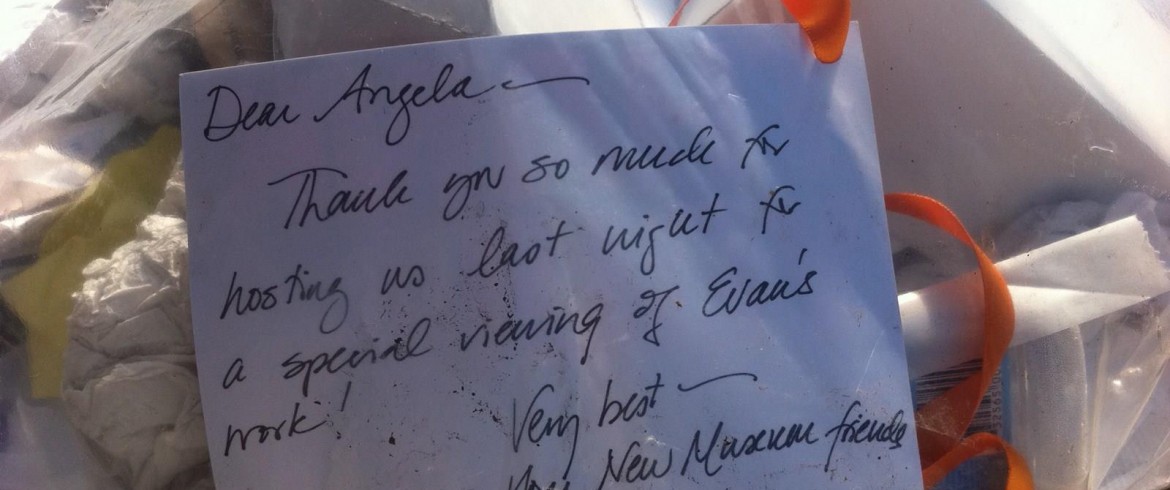 Dear Angela —
Thank you so much for
hosting us last night for
a special viewing of Evan's
work!
Very best —
Your New Museum friends